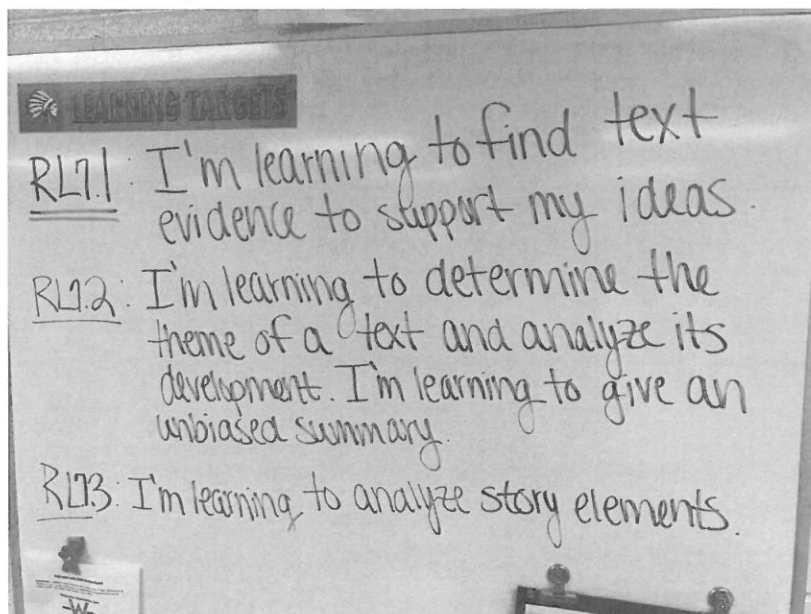 LEARNING TARGETS
RL7.1: I'm learning to find text
evidence to support my ideas.
RL7.2: I'm learning to determine the
theme of a text and analyze its
development. I'm learning to give an
unbiased summary.
RL7.3: I'm learning to analyze story elements.
W